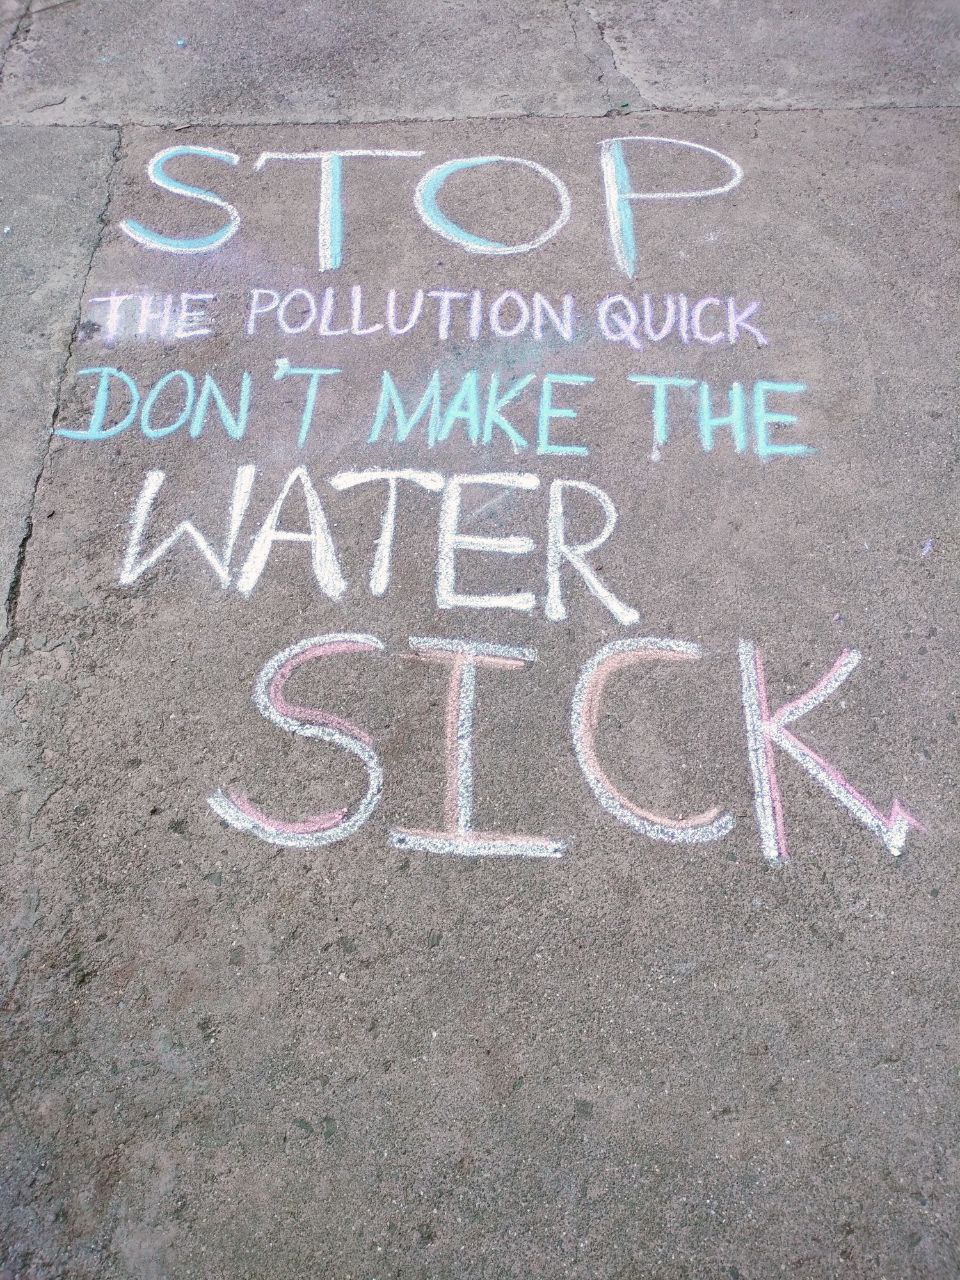 STOP
THE POLLUTION QUICK
DON'T MAKE THE
WATER
SICK